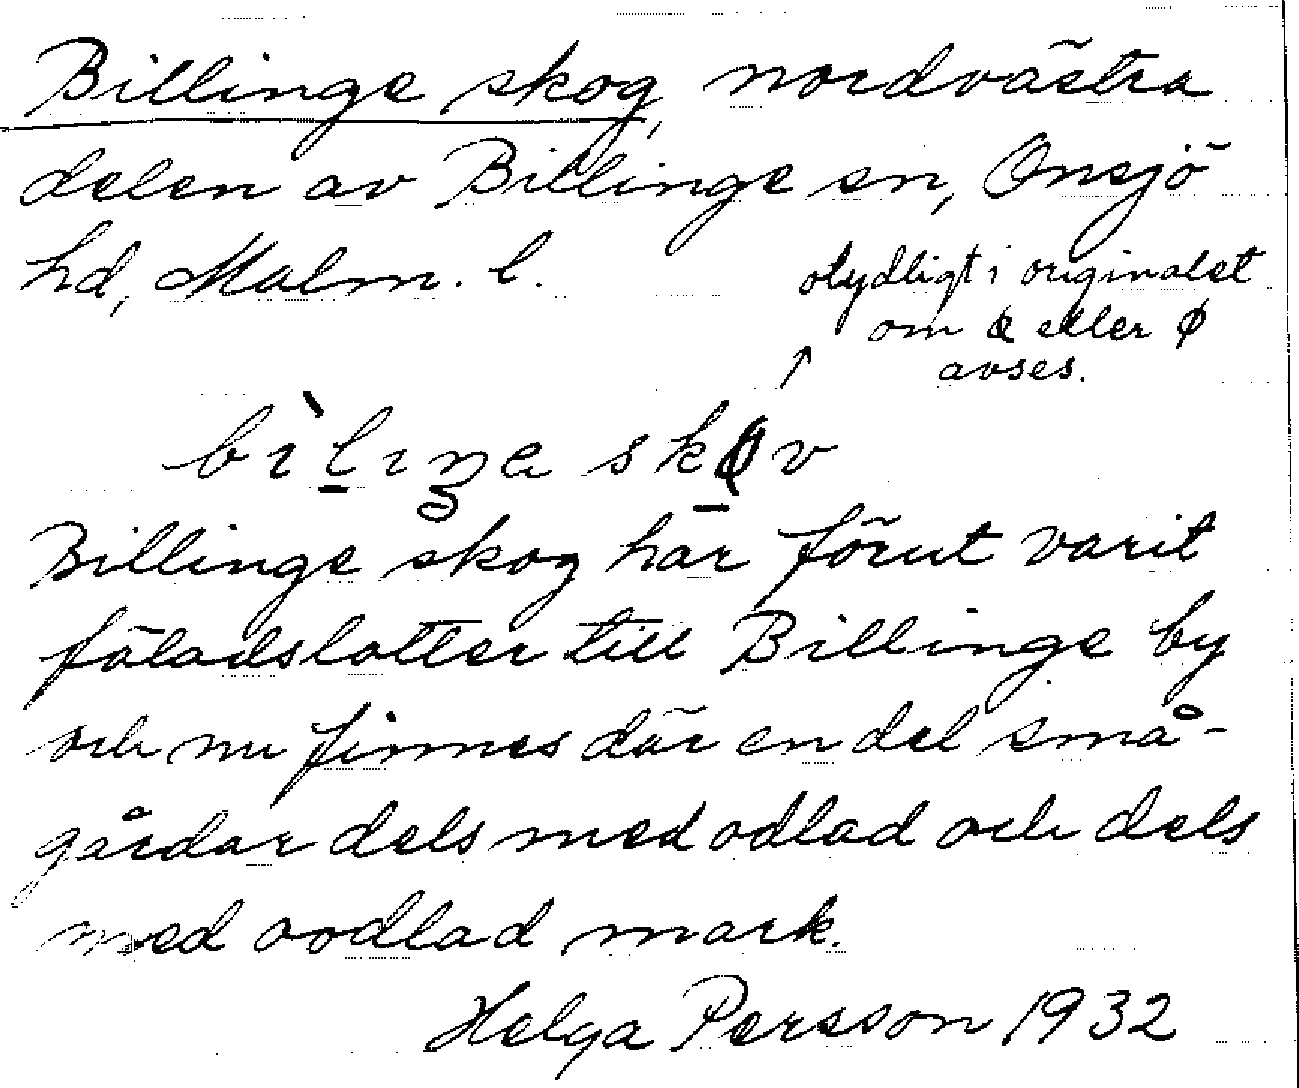 Billinge skog, nordvästra
delen av Billinge sn, Onsjö
hd, Malm. l.
otydligt i originalet
om a eller ø
avses.
↑
bìlinga skøv
Billinge skog har förut varit
fäladslotter till Billinge by
och nu finnes där en del små-
gårdar dels med odlad och dels
med oodlad mark.
Helga Persson 1932